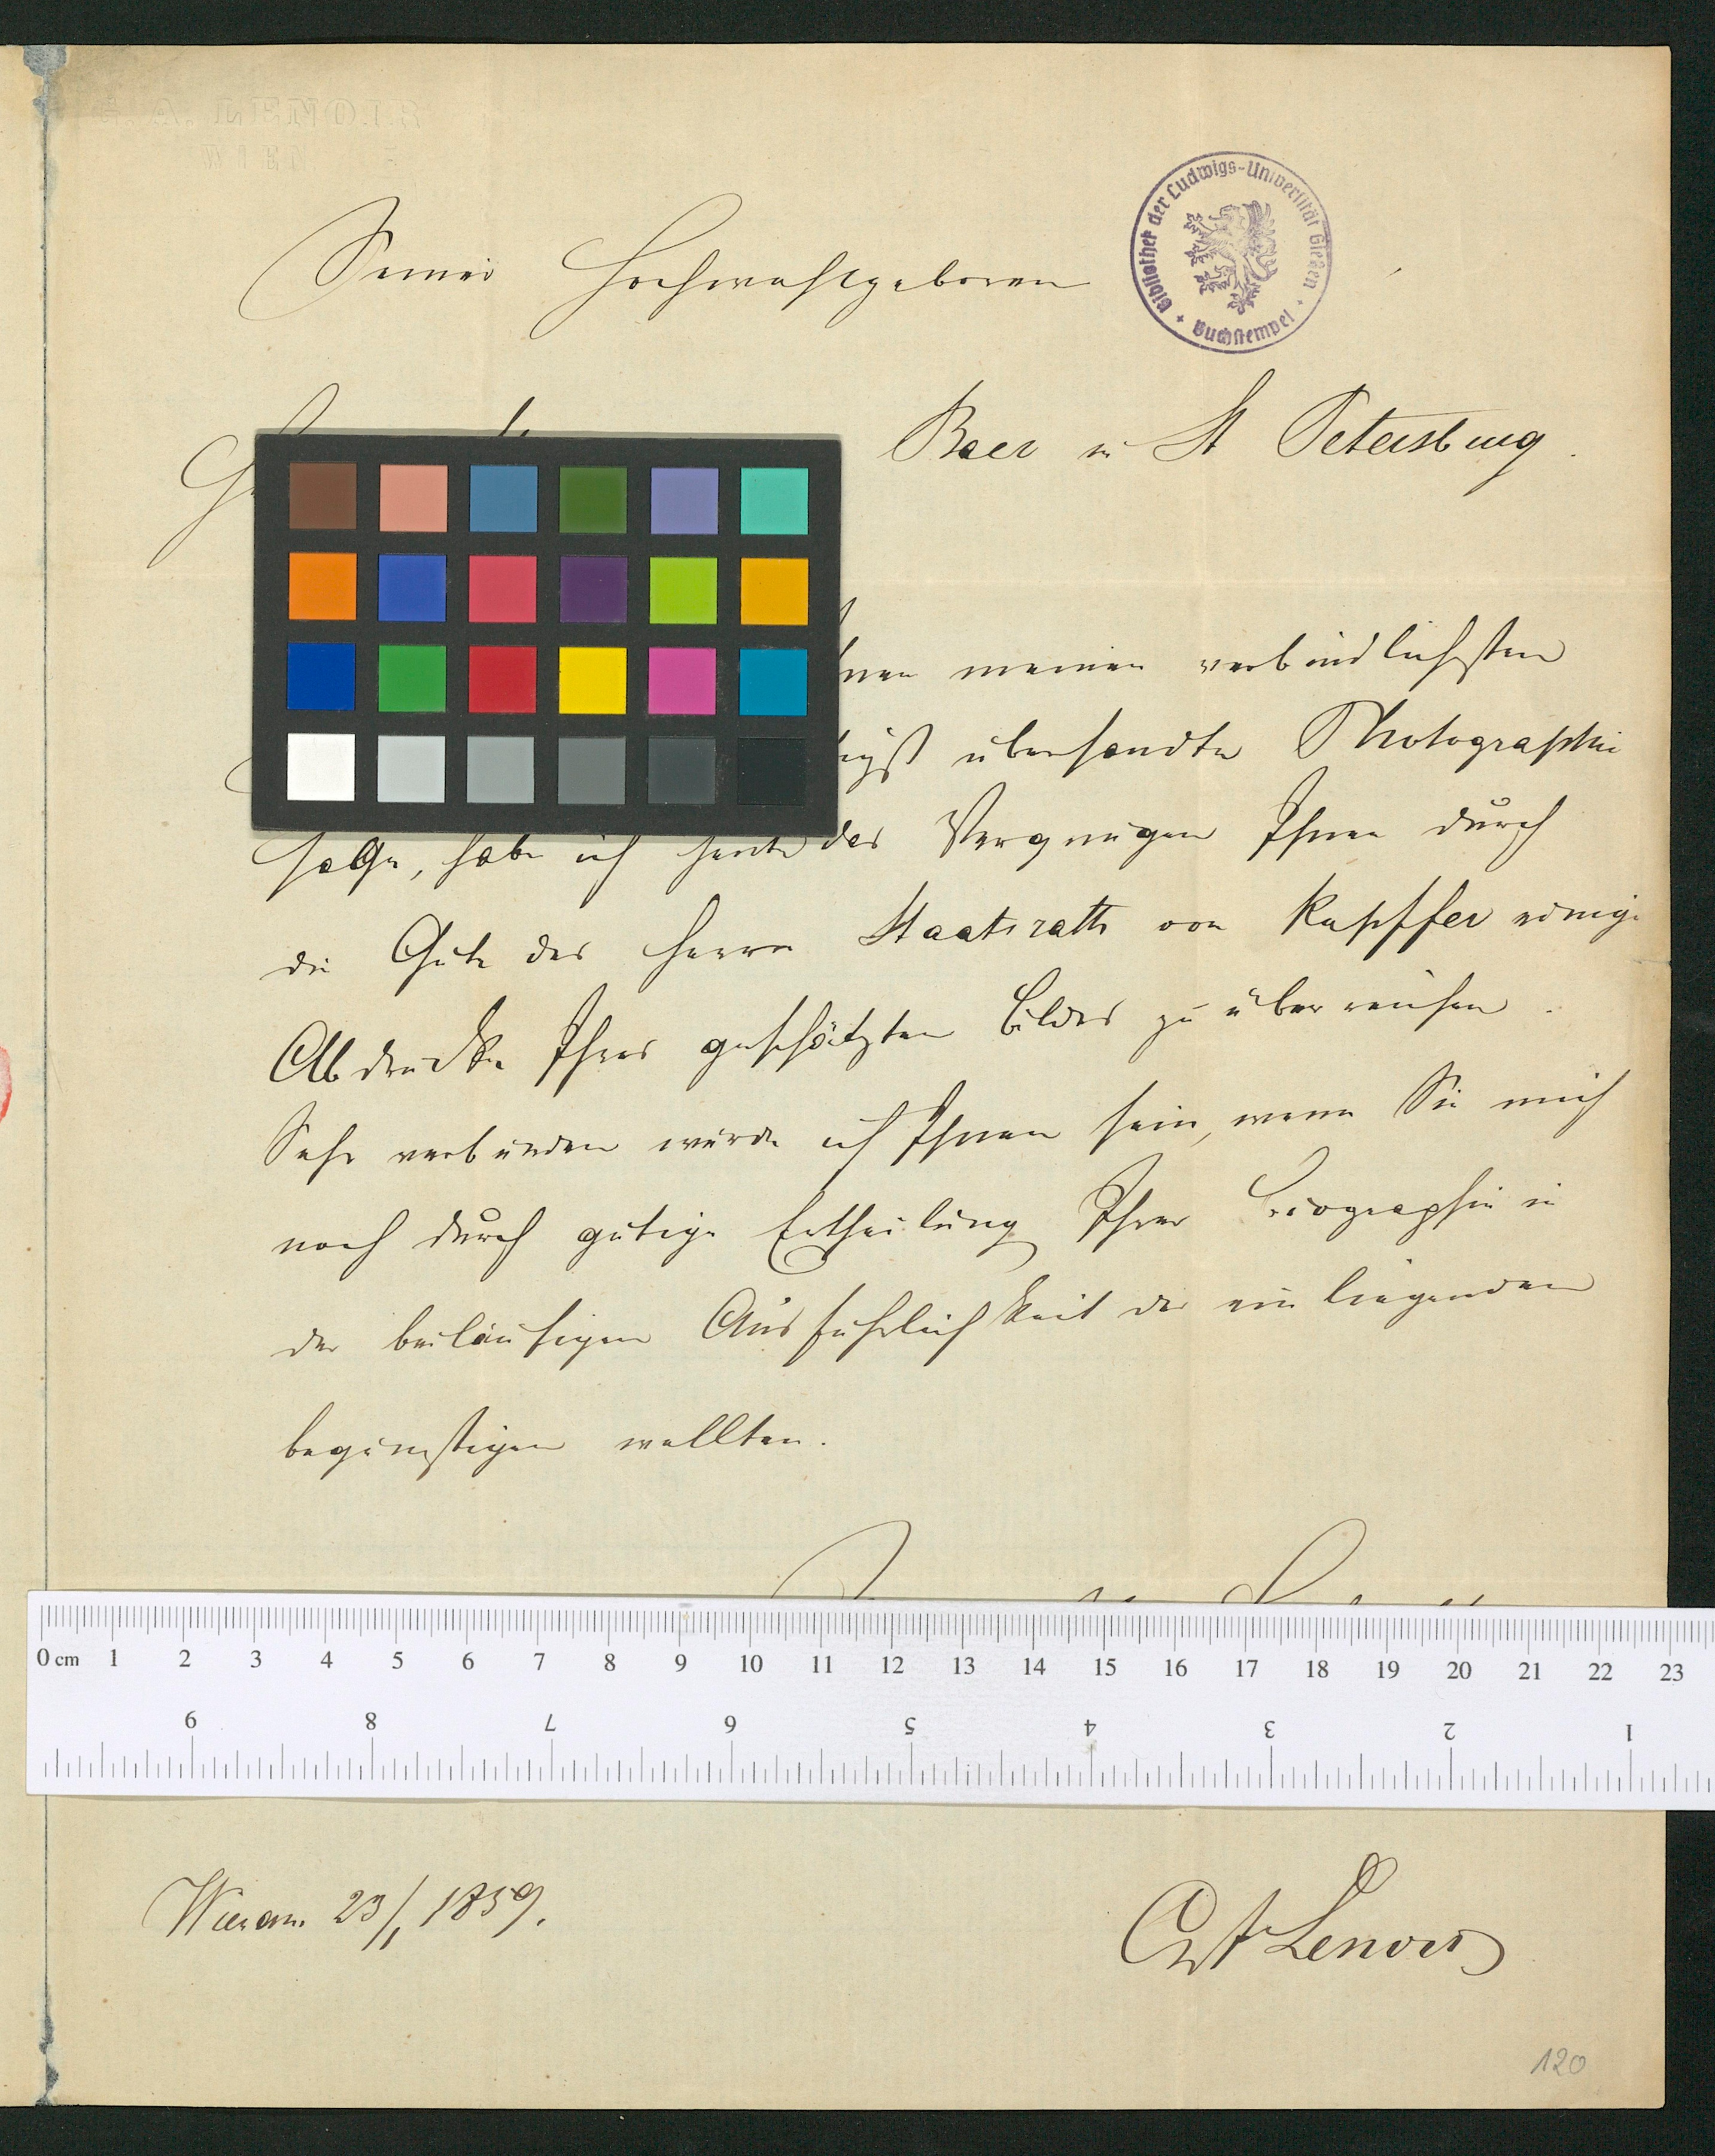 G. A. LENOIR
WIEN
Bibliothek der Ludwigs-Universität Gießen
Buchstempel
Seiner Hochwohlgeboren
Baer in St Petersburg.
meinen verbindlichsten
übersandte Photographie
sage, habe ich heute das Vergnügen Ihnen durch
die Güte des Herrn Staatsrath von Kupffer einige
Abdrücke Ihres geschätzten Bildes zu überreichen.
Sehr verbunden würde ich Ihnen sein, wenn Sie mich
noch durch gütige Ertheilung Ihrer Biographie in
der beiläufigen Ausführlichkeit der einliegenden
begünstigen wollten.
0 cm 1 2 3 4 5 6 7 8 9 10 11 12 13 14 15 16 17 18 19 20 21 22 23
9 8 7 6 5 4 3 2 1
Wien am 23/1 1859.
GA Lenoir
120